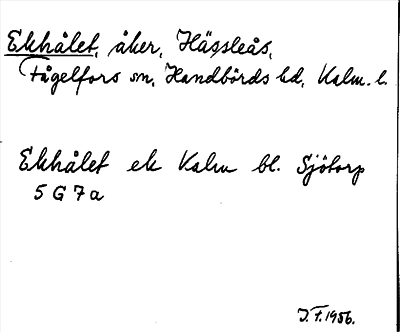 Ekhålet, åker, Hässleås,
Fågelfors sn, Handbörds hd, Kalm. l.
Ekhålet ek Kalm bl. Sjötorp
5 G 7 a
J. F. 1956.